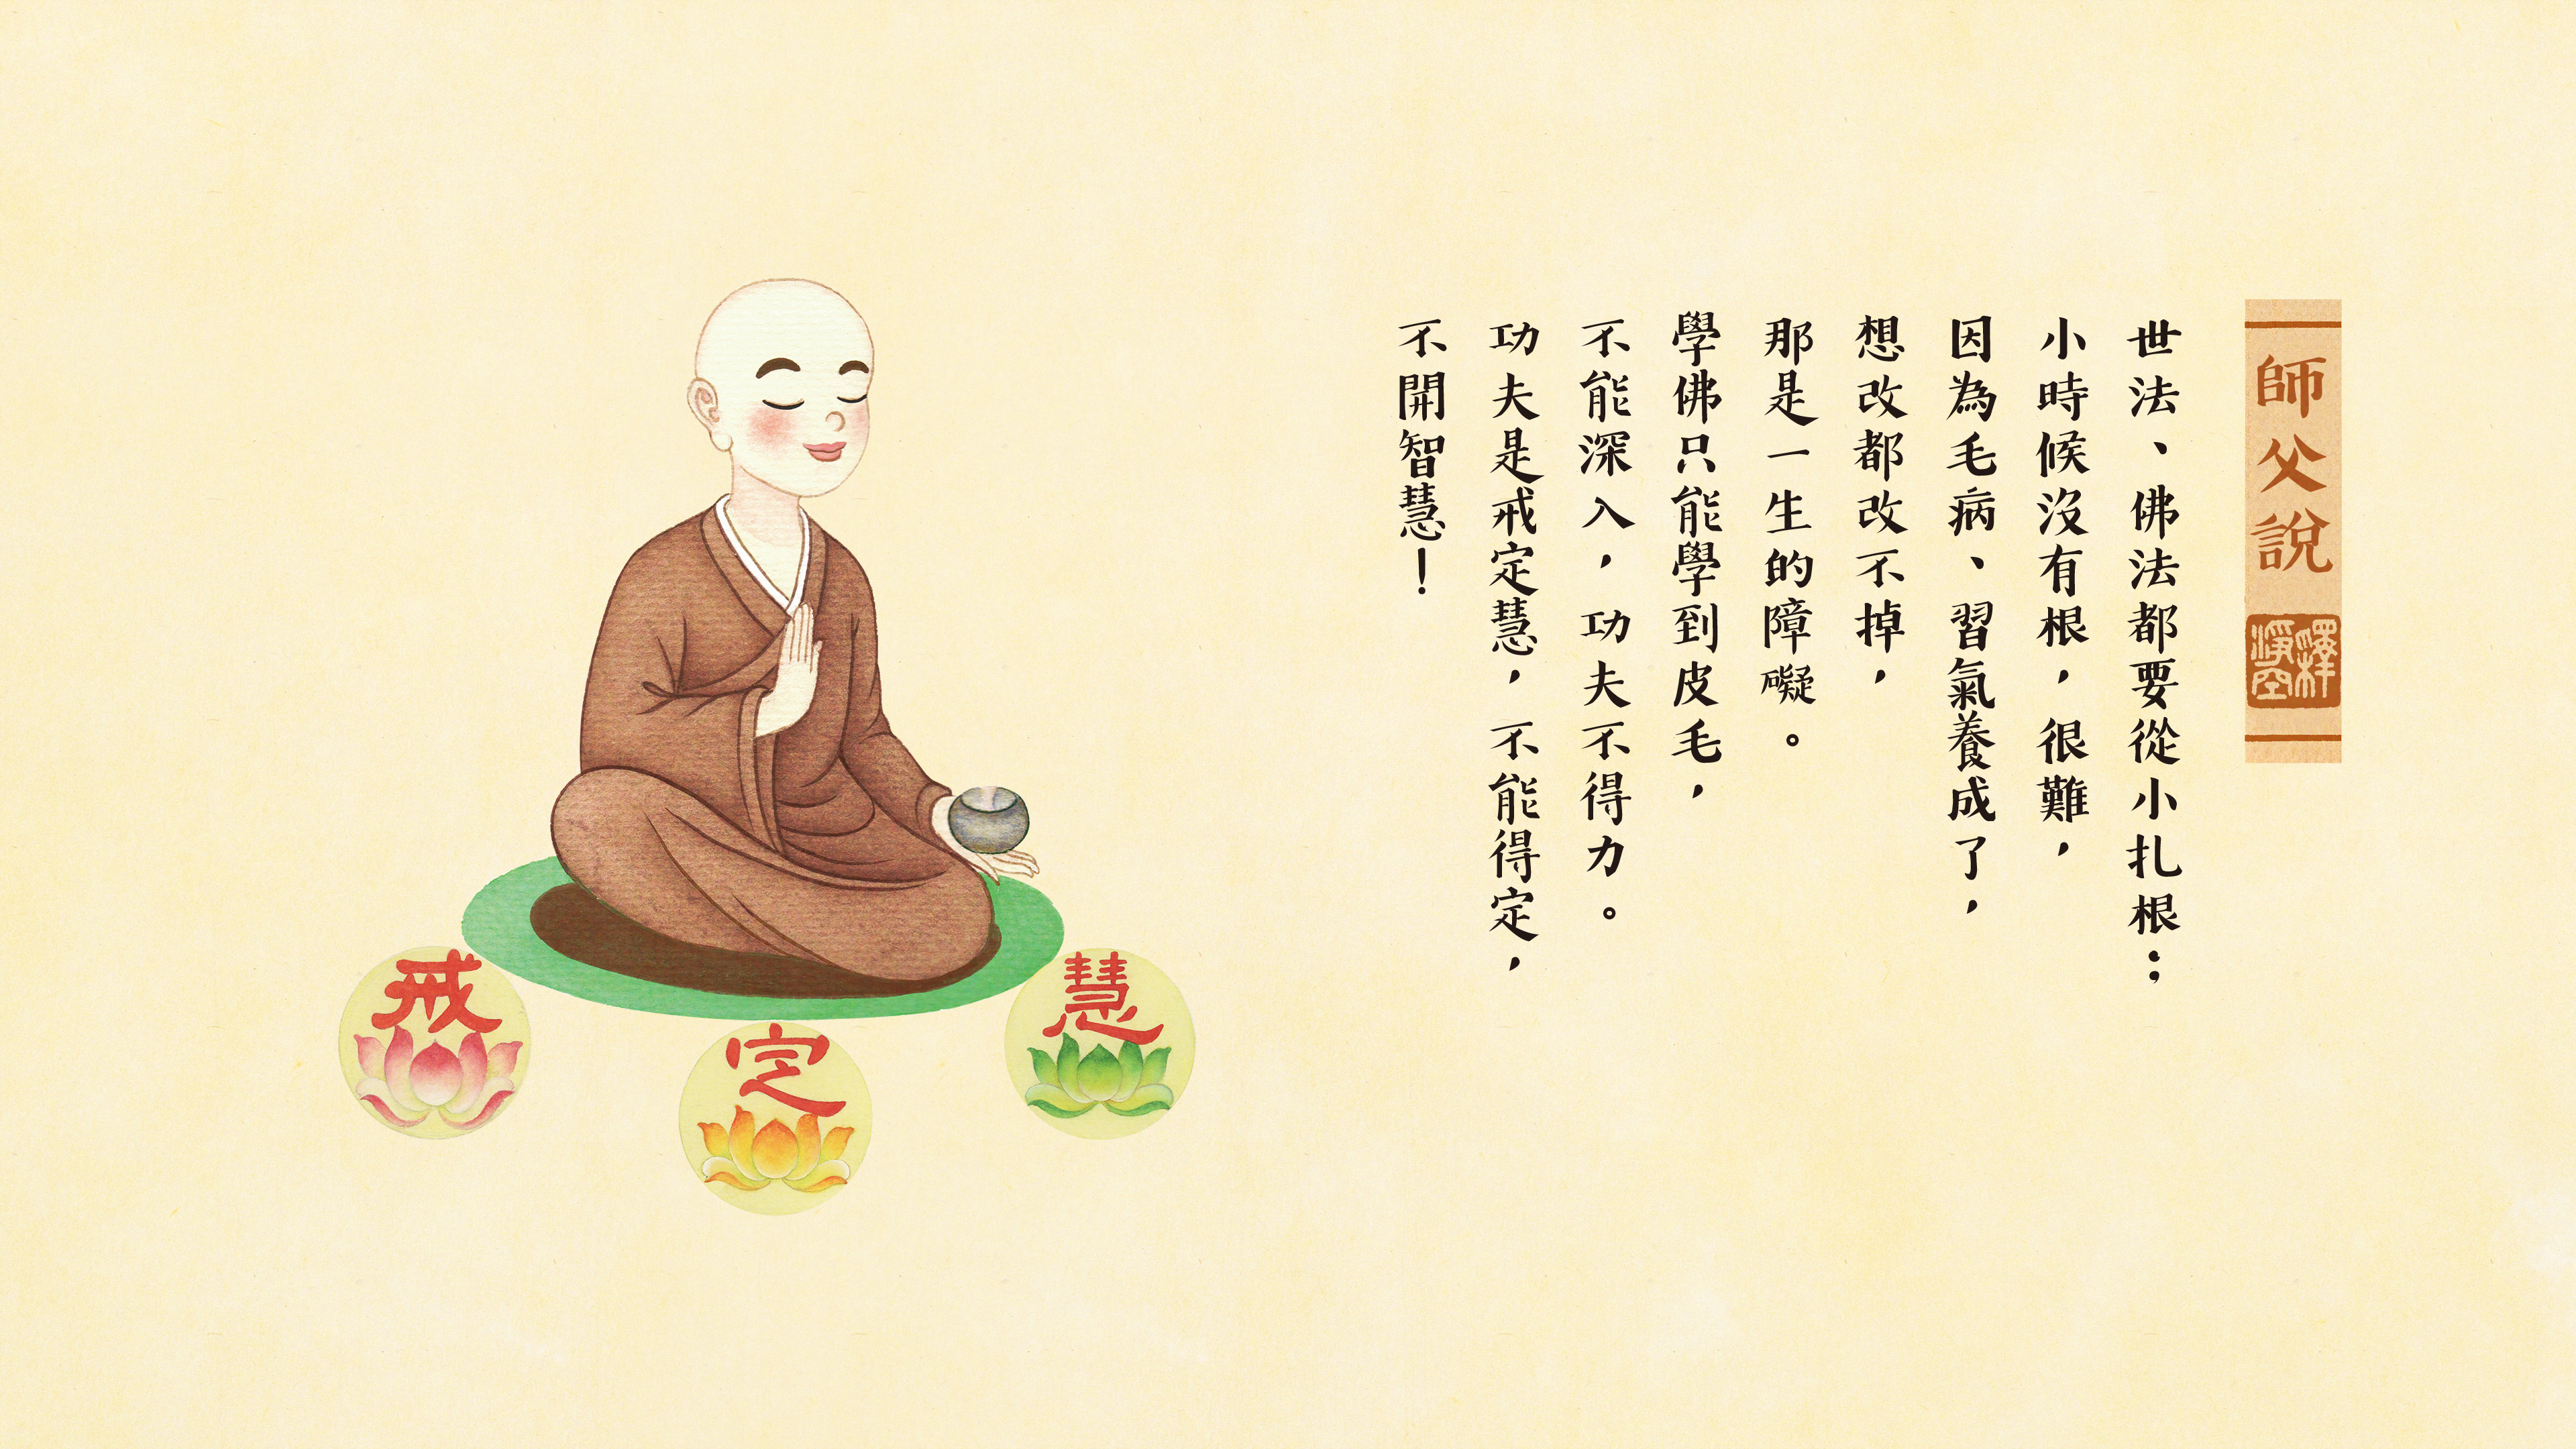 師父說
釋淨空
世法、佛法都要從小扎根；
小時候沒有根，很難，
因為毛病、習氣養成了，
想改都改不掉，
那是一生的障礙。
學佛只能學到皮毛，
不能深入，功夫不得力。
功夫是戒定慧，不能得定，
不開智慧！
戒
定
慧